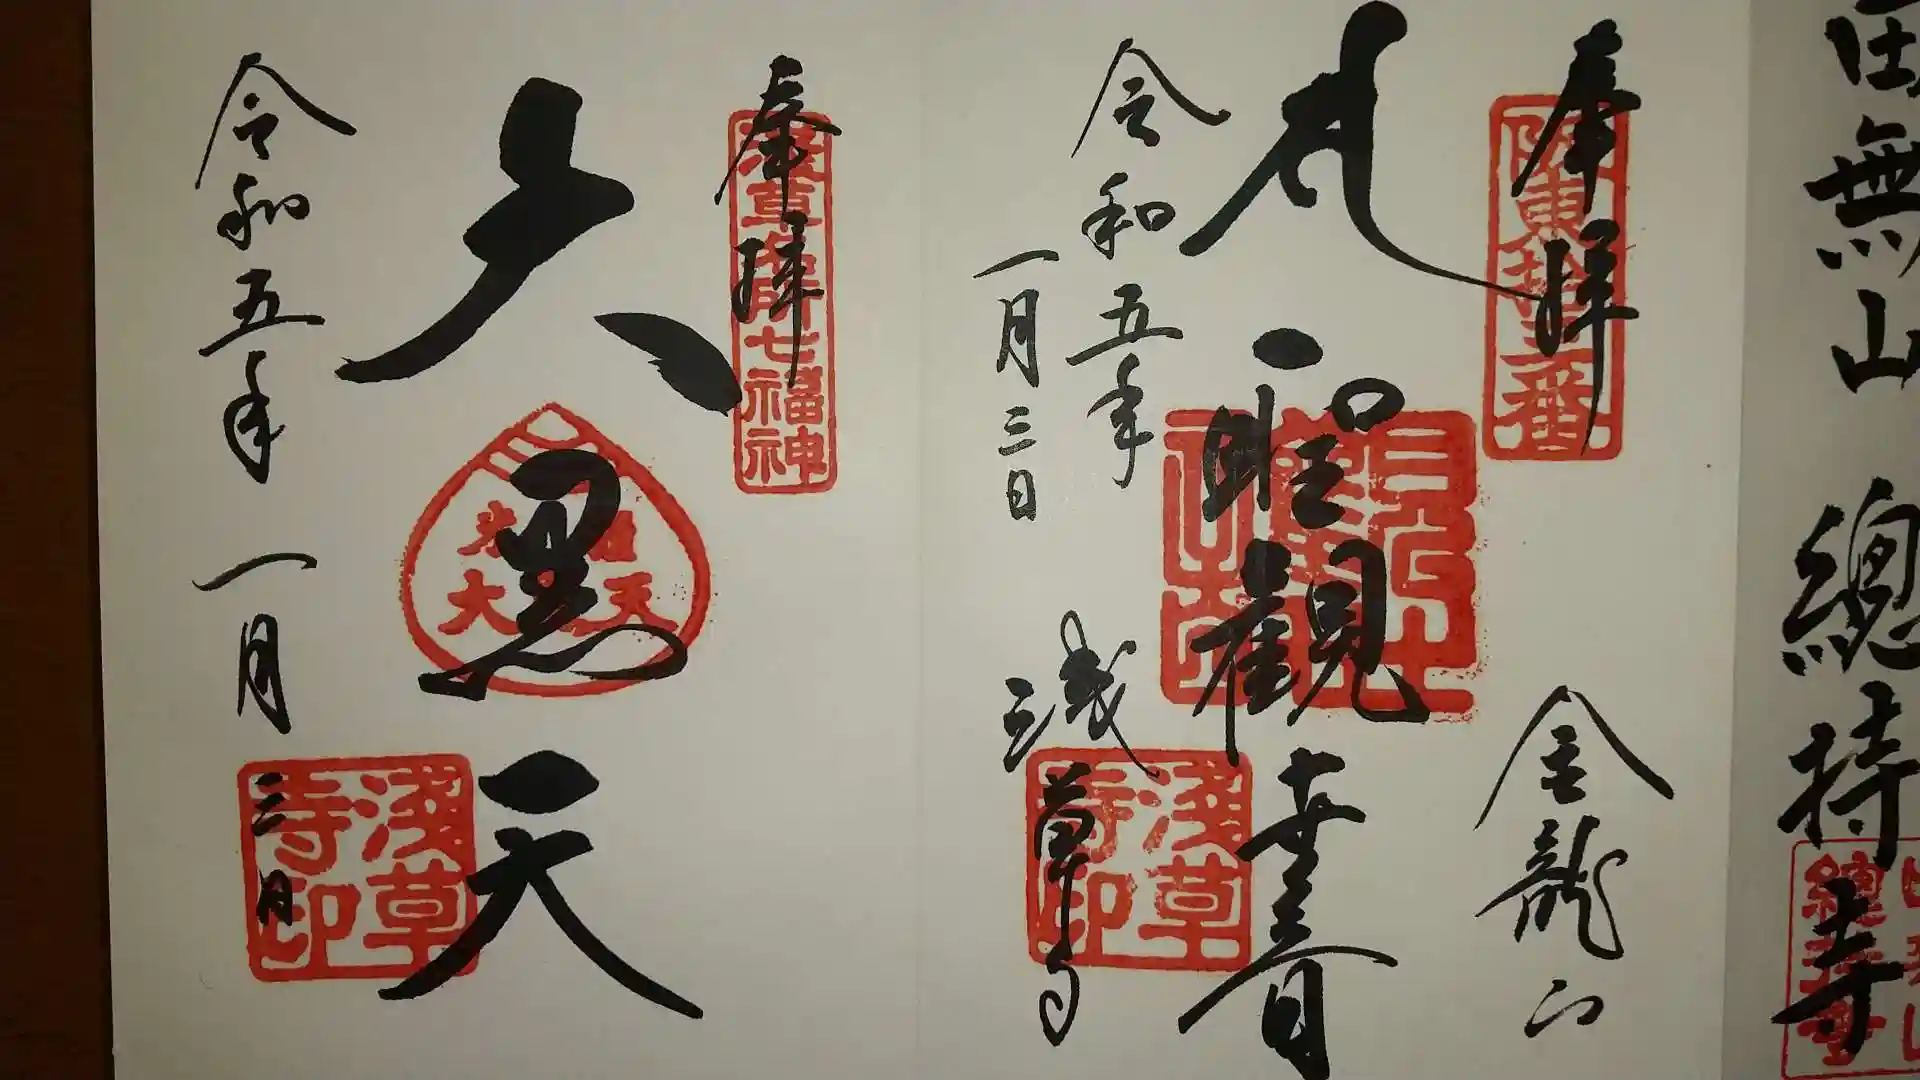 田無山 總持寺
奉拝
坂東拾三番
聖観世音
金龍山
令和五年
一月三日
浅草寺
浅草寺印
奉拝
浅草名所七福神
大黒天
令和五年一月三日
浅草寺印